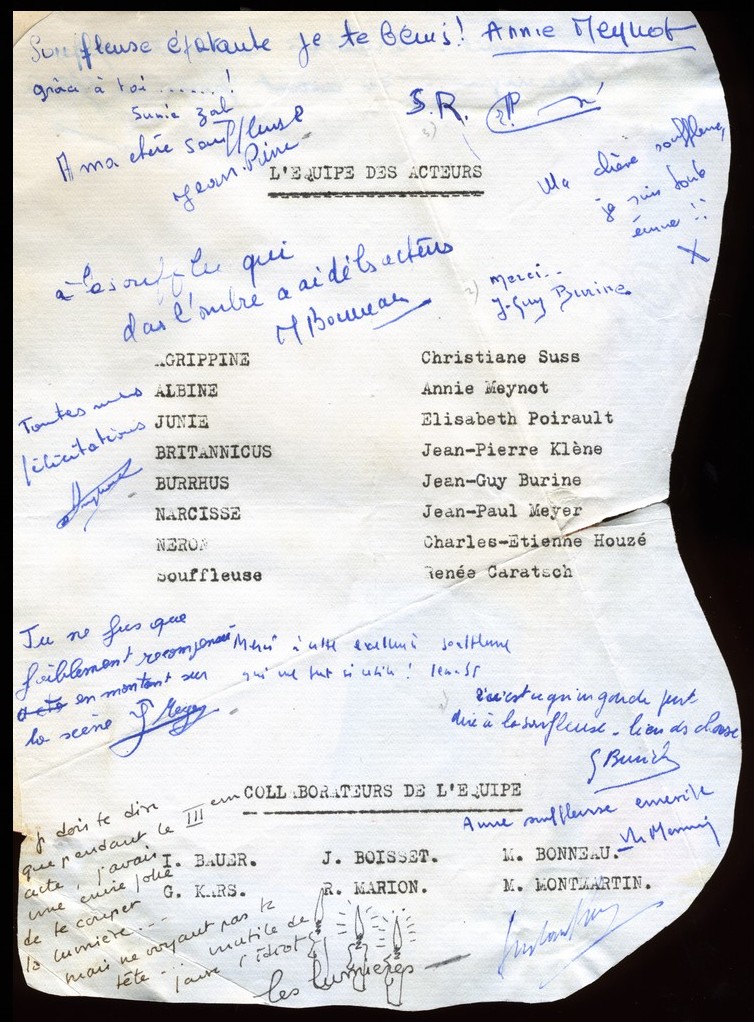 Souffleuse épatante je te bénis! Annie Meynot
grâce à toi ......!
S.R.
A ma chère souffleuse
Jean-Pierre
L'EQUIPE DES ACTEURS
Ma chère souffleuse,
je suis toute
émue !!
X
à la souffleuse qui
dans l'ombre a aidé les acteurs
M Bonneau
merci...
J-Guy Burine
.GRIPPINE Christiane Suss
ALBINE Annie Meynot
JUNIE Elisabeth Poirault
BRITANNICUS Jean-Pierre Klène
BURRHUS Jean-Guy Burine
NARCISSE Jean-Paul Meyer
NERON Charles-Etienne Houzé
Souffleuse Renée Caratsch
Toutes mes
félicitations
Tu ne fus que
faiblement récompensée
en montant sur
la scène J Meyer
Merci à notre excellente souffleuse
qui me fut si utile!
dire à la souffleuse - bien des choses
COLLABORATEURS DE L'EQUIPE
A une souffleuse émérite
I. BAUER. J. BOISSET. M. BONNEAU.
G. KARS. R. MARION. M. MONTMARTIN.
je dois te dire
que pendant le IIIem
acte, j'avais
une envie folle
de te couper
la lumière...
mais ne voyant pas ta
tête... inutile de
faire l'idiot
les lumières